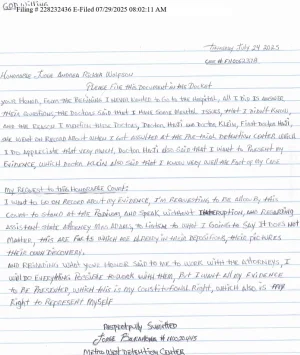 GOD willing
Filing # 228232436 E-Filed 07/29/2025 08:02:11 AM
Thursday July 24 2025
Case #
Honorable Judge Andrea Ricker Wolfson
Please File this Document in the Docket
Your Honor, From the Beginning I Never Wanted to Go to the Hospital, All I Did is Answer
Their Questions, the Doctors Said that I Have Some Mental Issues, that I Didn't Know,
And the Reason I Mention these Doctors, Doctor Haiti and Doctor Klein, First Doctor Haiti,
She Went on Record About when I Got Assaulted at the Pre-trial Detention Center which
I Do Appreciate that very Much, Doctor Haiti Also Said that I Want to Present My
Evidence, which Doctor Klein Also Said that I Know very well the Fact of My Case
My Request to this Honorable Court:
I Want to Go on Record About My Evidence, I'm Requesting to Be Allow, this
Court to Stand at the Podium, And Speak without Interruption, and Regarding
Assistant State Attorney Miss Adams, to Listen to what I Going to Say it Does Not
Matter, this Are Facts which Are Already in their Depositions, their Pictures
Their own Discovery.
And Regarding what your Honor Said to Me to Work with the Attorneys, I
will Do Everything Possible to Work with them, But I Want All My Evidence
to Be Presented, which this is My Constitutional Right, which Also is My
Right to Represent Myself
Respectfully Submitted
Jorge
Metro West Detention Center